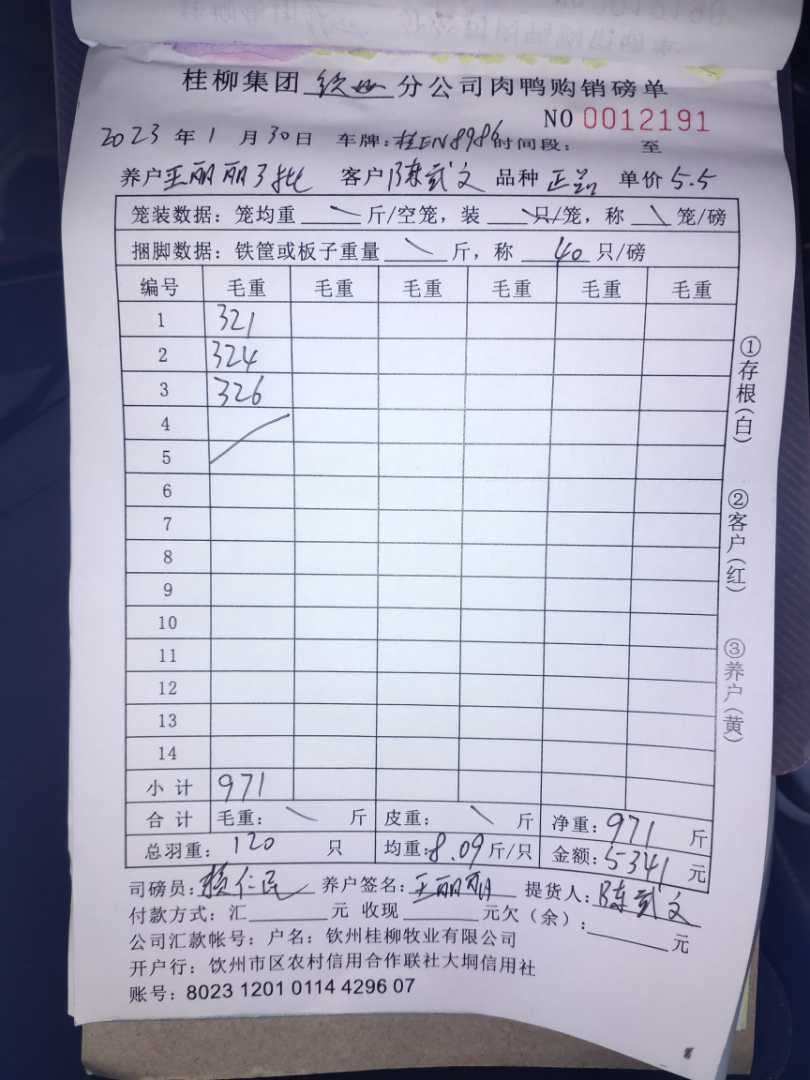 桂柳集团钦州分公司肉鸭购销磅单
NO 0012191
2023年1月30日 车牌:桂EN8986时间段: 至
养户王丽丽3批 客户陈武文 品种正品 单价5.5
笼装数据:笼均重 斤/空笼,装 只/笼,称 笼/磅
捆脚数据:铁筐或板子重量 斤,称 40 只/磅
编号 毛重 毛重 毛重 毛重 毛重 毛重
1 321
2 324
3 326
4
5
6
7
8
9
10
11
12
13
14
小计 971
合计 毛重: 斤 皮重: 斤 净重:971 斤
总羽重:120 只 均重:8.09斤/只 金额:5341元
司磅员: 仁民 养户签名:王丽丽 提货人:陈武文
付款方式:汇 元 收现 元欠(余): 元
公司汇款帐号:户名:钦州桂柳牧业有限公司
开户行:饮州市区农村信用合作联社大垌信用社
账号:8023 1201 0114 4296 07
①存根(白)
②客户(红)
③养户(黄)